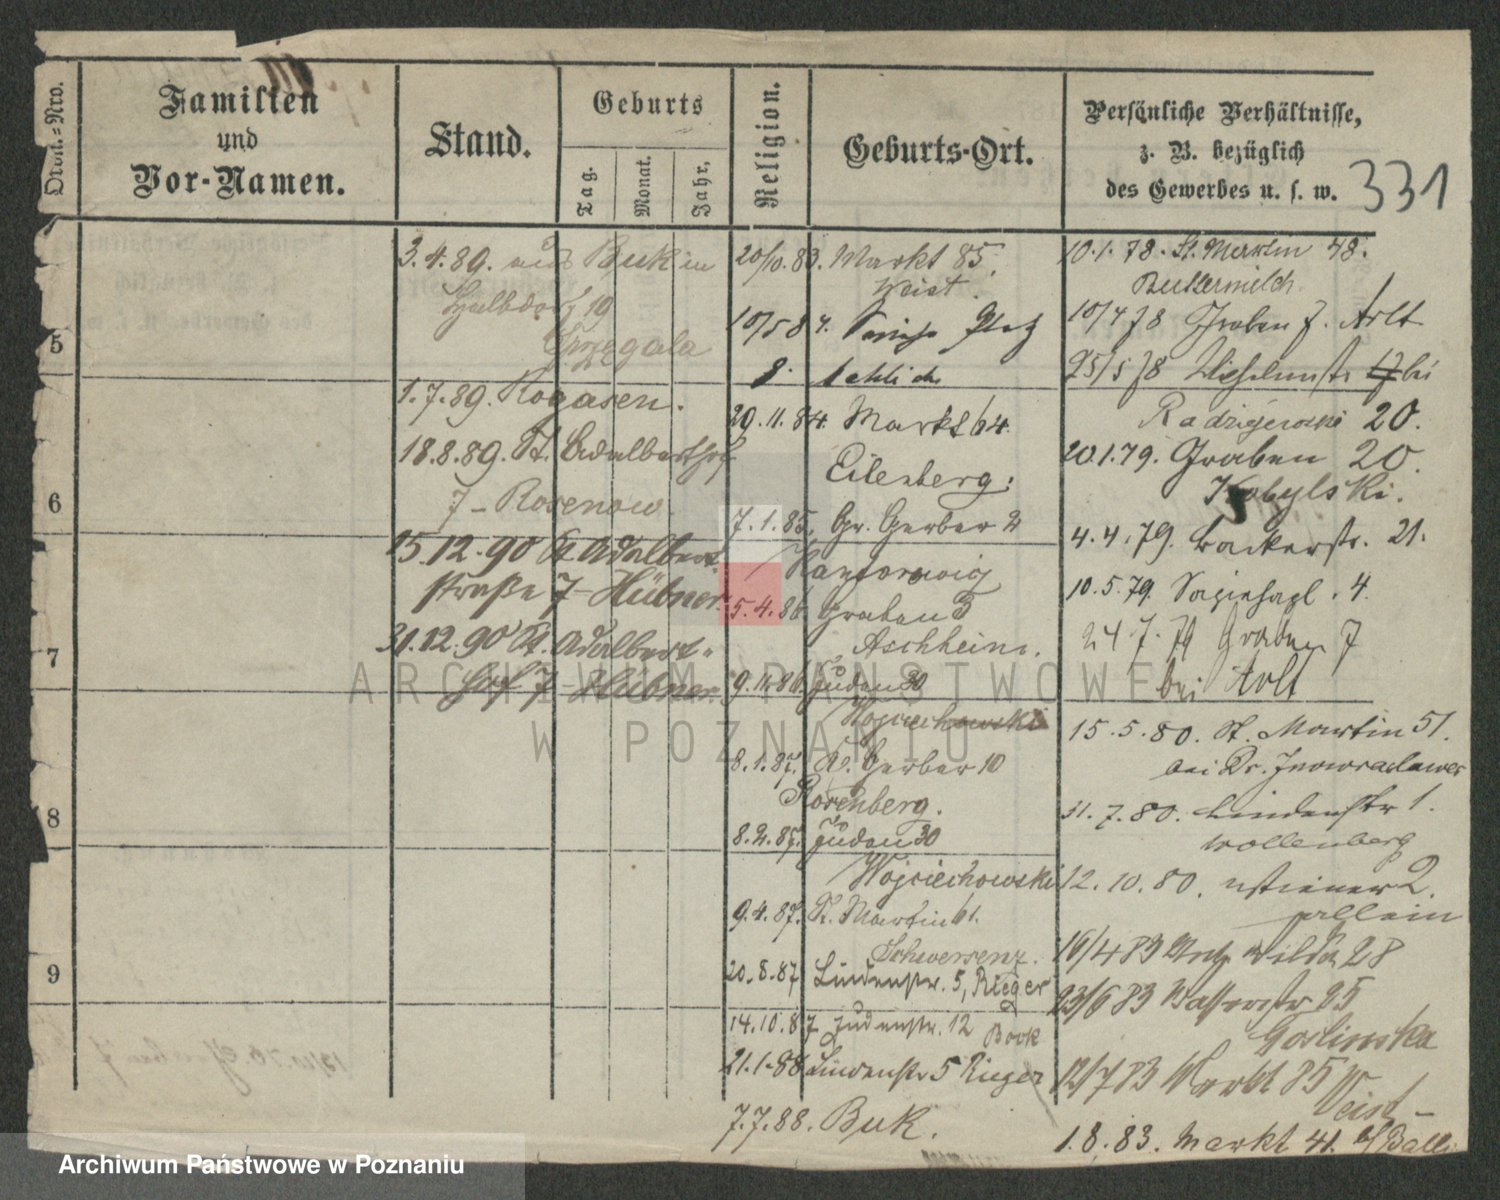 Familien
und
Vor-Namen.
Stand.
Geburts
Tag.
Monat.
Jahr.
Religion.
Geburts-Ort.
Persönliche Verhältnisse,
z. B. bezüglich
des Gewerbes u. s. w.
331
5
6
7
8
9
3.4.89. aus Buk in
Halbdorf 19
1.7.89. Rogasen.
18.8.89. St. Adalberthof
7 - Rosenow.
15.12.90 St Adalbert-
straße 7 - Hübner.
31.12.90 St. Adalbert-
hof 7 - Hübner.
20/10.83. Markt 85.
Weist.
10/5 84.
29.11.84. Markt 64.
Eilenberg.
7.1.85. Gr. Gerber 2
Kantorowicz
5.4.86 Graben 3
Aschheim.
9.11.86 Juden 30
Wojciechowski
8.1.87. Gr. Gerber 10
Rosenberg.
8.2.87. Juden 30
Wojciechowski
9.4.87. St. Martin 61.
Schwersenz.
20.8.87 Lindenstr. 5, Rieger
14.10.87 Judenstr. 12 Book
21.1.88 Lindenstr 5 Rieger
7.7.88. Buk.
10.1.78. St. Martin 48.
Buttermilch.
10/4 78 Graben 7. Arlt
25/5 78 Wilhelmstr 17 bei
Radziejewski 20.
20.1.79. Graben 20.
Kobylski.
4.4.79. Bäckerstr. 21.
10.5.79. 4.
24.7.79 Graben 7
bei Arlt
15.5.80. St. Martin 51.
bei Dr. Inowraclawer
31.7.80. Lindenstr 1.
Wollenberg
12.10.80. 2.
allein
16/4 83 Wilda 28
23/6 83 Wasserstr 25
Goslinska
12/7 83 Markt 85 Weist
1.8.83. Markt 41.
ARCHIWUM PAŃSTWOWE
W POZNANIU
Archiwum Państwowe w Poznaniu